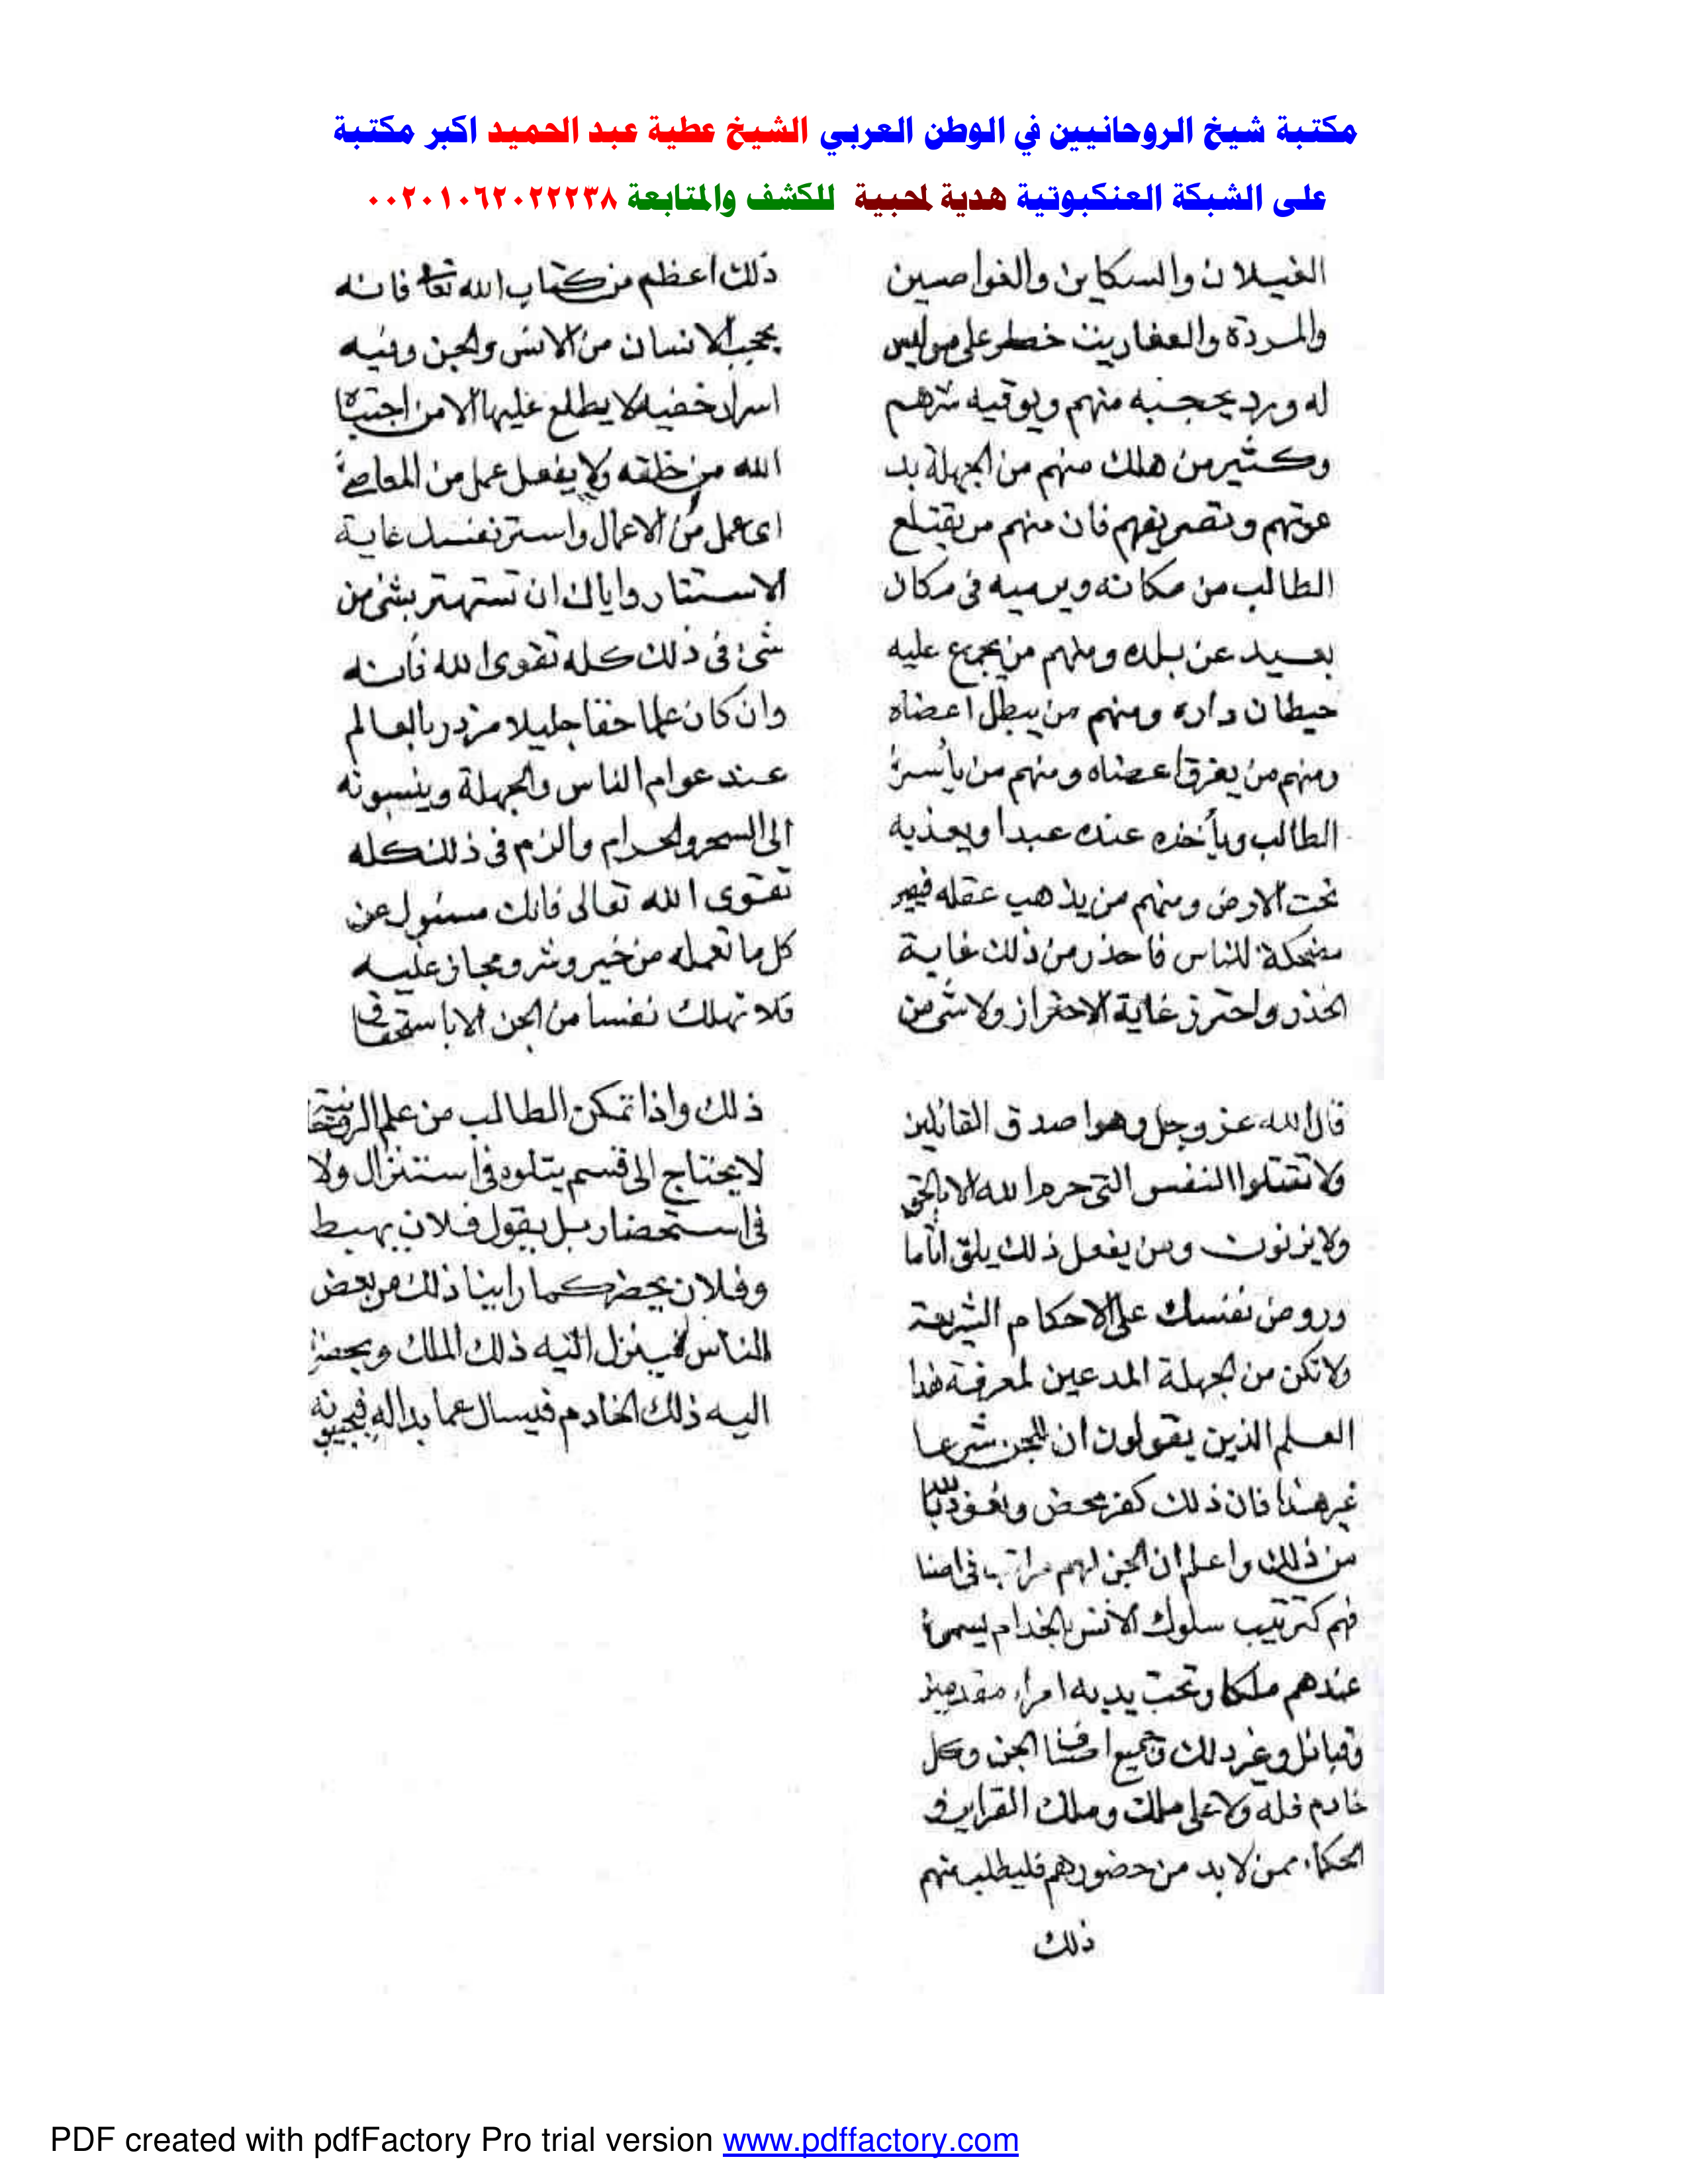 مكتبة شيخ الروحانيين في الوطن العربي الشيخ عطية عبد الحميد اكبر مكتبة
على الشبكة العنكبوتية هدية لمحبية للكشف والمتابعة ٠٠٢٠١٠٦٢٠٢٢٢٣٨
الغيلان والسكاين والغواصين
والمردة والعفاريت خطر على من ليس
له ورد يحجبه منهم ويوقيه شرهم
وكثير من هلك منهم من الجهلة بد
عوتهم وتصريفهم فان منهم من يقتلع
الطالب من مكانه ويرميه فى مكان
بعيد عن بلده ومنهم من يجمع عليه
حيطان داره ومنهم من يبطل اعضاه
ومنهم من يفرق اعضاه ومنهم من يأسر
الطالب ويأخذه عنده عبدا ويعذبه
تحت الارض ومنهم من يذهب عقله فيصير
مضحكة للناس فاحذر من ذلك غاية
الحذر واحترز غاية الاحتراز ولا شئ من
ذلك اعظم من كتاب الله تعا فانه
يحجب الانسان من الانس والجن وفيه
اسرار خفيه لا يطلع عليها الا من اجتباه
الله من خلقه ولا يفعل عمل من المعاصى
اى عمل من الاعمال واستر نفسك غاية
الاستتار واياك ان تستهتر بشئ من
شئ فى ذلك كله تقوى الله فانه
وان كان علما حقا جليلا مزدر بالعالم
عند عوام الناس والجهلة وينسبونه
الى السحر والحرام والزم فى ذلك كله
تقوى الله تعالى فانك مسئول عن
كل ما تعمله من خير وشر ومجاز عليه
فلا تهلك نفسا من الجن الا باستحقاق
قال الله عز وجل وهو اصدق القائلين
ولا تقتلوا النفس التى حرم الله الا بالحق
ولا يزنون ومن يفعل ذلك يلق اثاما
وروض نفسك على الاحكام الشريعة
ولا تكن من الجهلة المدعين لمعرفة هذا
العلم الذين يقولون ان للجن شرعا
غير هذا فان ذلك كفر محض ونعوذ بالله
من ذلك واعلم ان الجن لهم مراتب فى اصنا
فهم كترتيب سلوك الانس بالخدام يسمى
عندهم ملكا وتحت يديه امراء مقدمين
وقبائل وغير ذلك وجميع اصناف الجن وكل
خادم فله ولا على ملك وملك القرابين و
الحكماء ممن لا بد من حضورهم فليطلب منهم
ذلك
ذلك واذا تمكن الطالب من علم الروحانية
لا يحتاج الى قسم يتلوه فى استنزال ولا
فى استحضار بل يقول فلان يهبط
وفلان يحضر كما راينا ذلك من بعض
الناس فينزل اليه ذلك الملك ويحضر
اليه ذلك الخادم فيسال عما بدا له فيجيبونه
PDF created with pdfFactory Pro trial version www.pdffactory.com